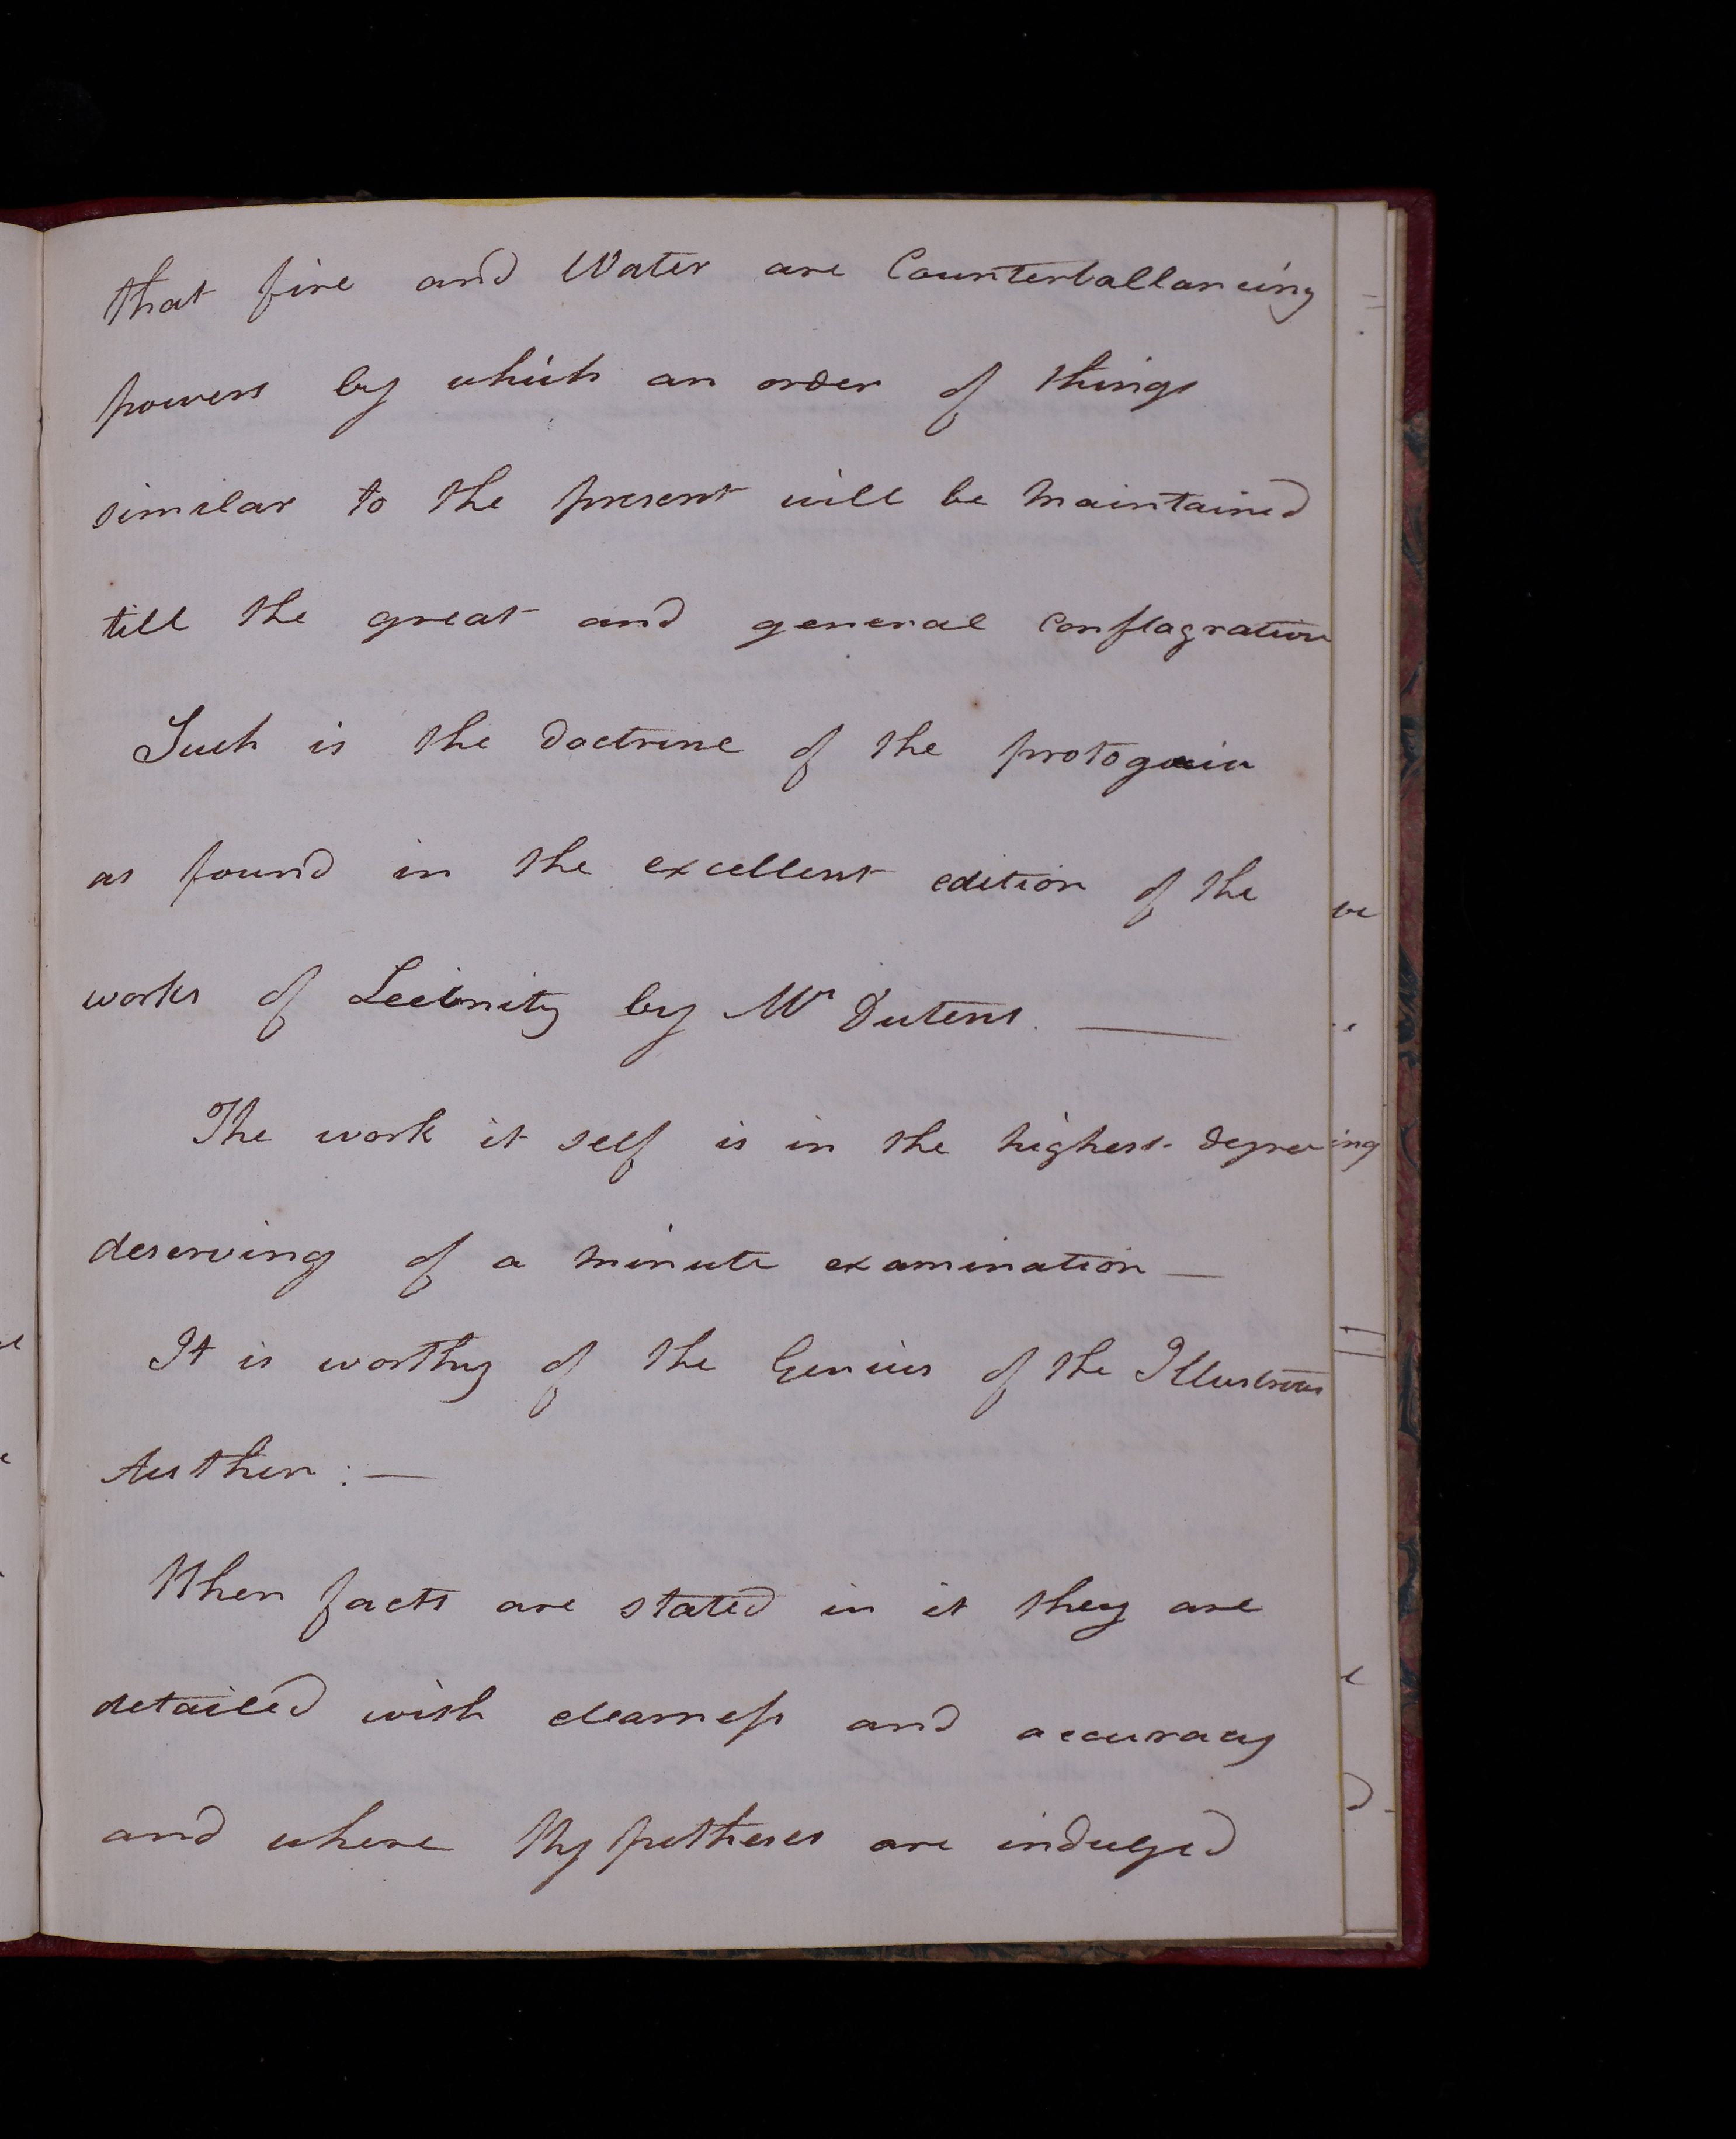 that fire and Water are Counterballancing
powers by which an order of things
similar to the present will be maintained
till the great and general conflagration
Such is the doctrine of the protogaia
as found in the excellent edition of the
works of Leibnitz by Mr Dutens. —
The work it self is in the highest degree
deserving of a minute examination —
It is worthy of the Genius of the Illustrous
Author : —
When facts are stated in it they are
detailed with clearness and accuracy
and where Hypotheses are indulged